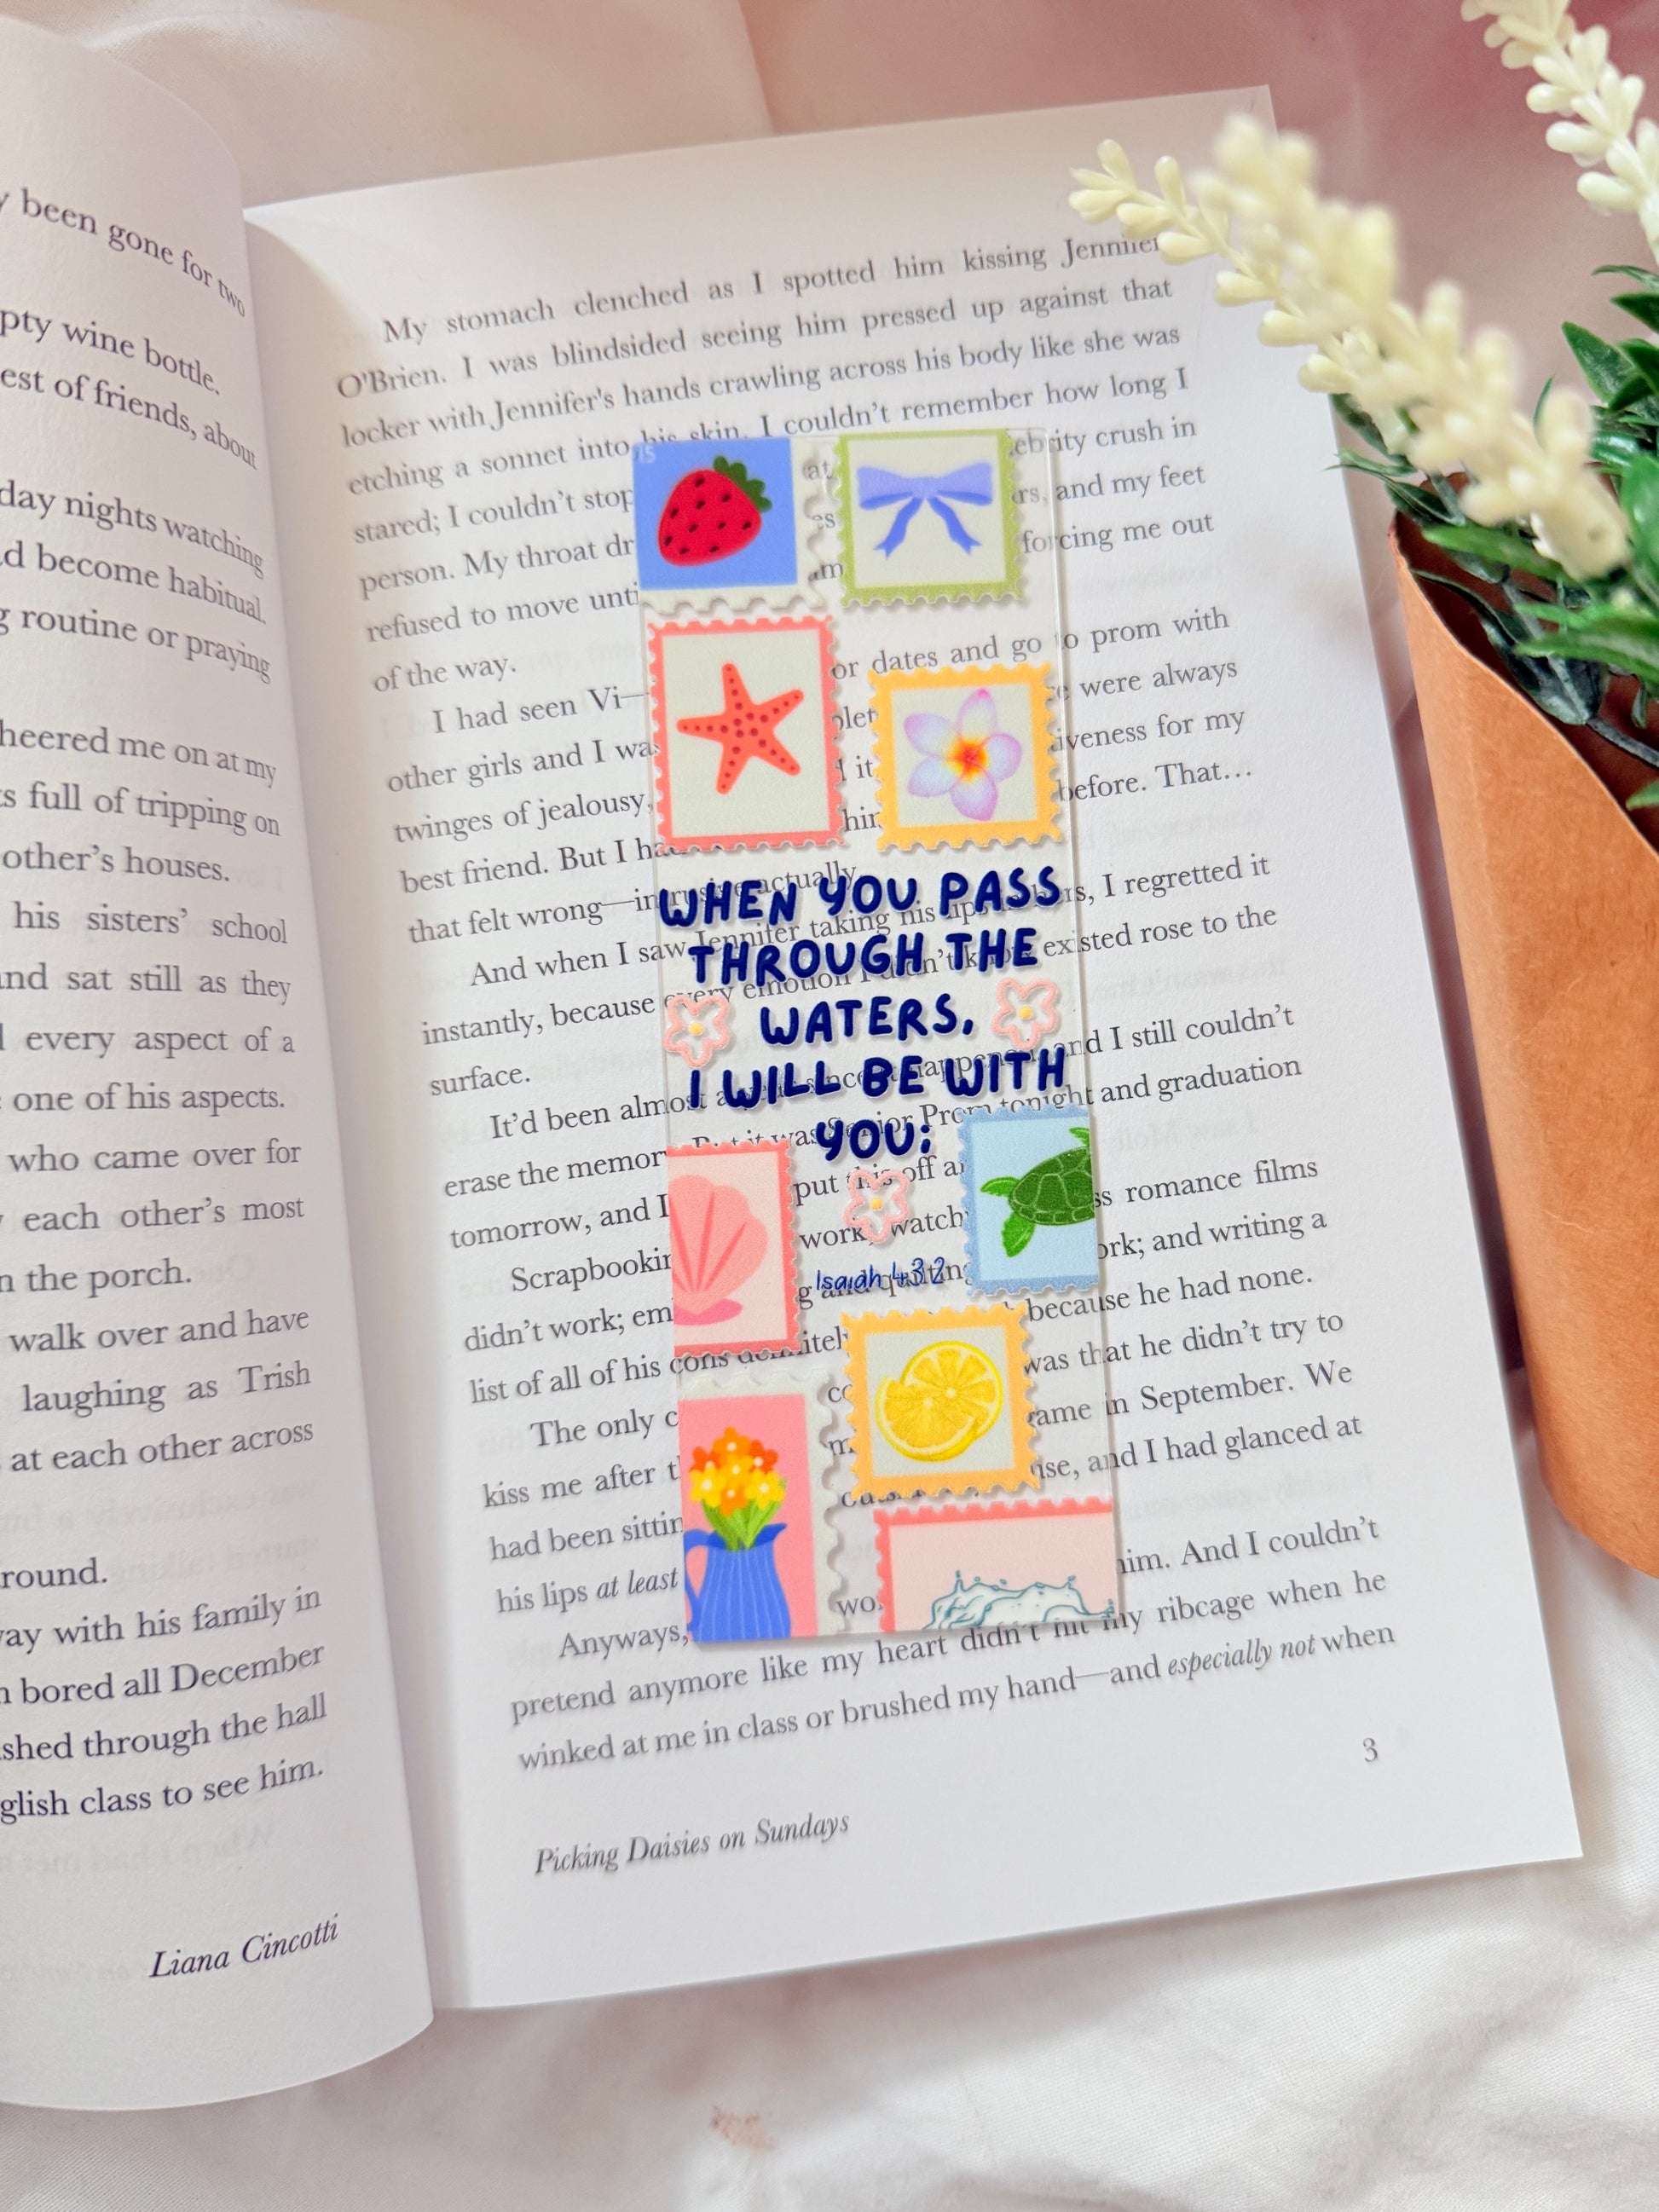 y been gone for two
pty wine bottle.
est of friends, about
day nights watching
d become habitual.
g routine or praying
heered me on at my
s full of tripping on
other's houses.
his sisters' school
and sat still as they
l every aspect of a
one of his aspects.
who came over for
y each other's most
n the porch.
walk over and have
laughing as Trish
at each other across
round.
vay with his family in
n bored all December
shed through the hall
glish class to see him.
Liana Cincotti
My stomach clenched as I spotted him kissing Jennifer
O'Brien. I was blindsided seeing him pressed up against that
locker with Jennifer's hands crawling across his body like she was
etching a sonnet into his skin. I couldn't remember how long I
stared; I couldn't stop at ebrity crush in
person. My throat dr es rs, and my feet
refused to move unti am forcing me out
of the way.
I had seen Vi— or dates and go to prom with
other girls and I was plet e were always
twinges of jealousy, l it iveness for my
best friend. But I ha hin before. That…
that felt wrong—intrusive actually.
And when I saw Jennifer taking his lips hers, I regretted it
instantly, because every emotion I didn't know existed rose to the
surface.
It'd been almost a year since it happened and I still couldn't
erase the memory But it was Senior Prom tonight and graduation
tomorrow, and I put this off a
Scrapbookin work; watch ss romance films
didn't work; em g and quilting ork; and writing a
list of all of his cons definitely because he had none.
The only c co was that he didn't try to
kiss me after t m ame in September. We
had been sittin outs ise, and I had glanced at
his lips at least
Anyways, wo him. And I couldn't
pretend anymore like my heart didn't hit my ribcage when he
winked at me in class or brushed my hand—and especially not when
3
Picking Daisies on Sundays
WHEN YOU PASS
THROUGH THE
WATERS,
I WILL BE WITH
YOU:
Isaiah 43:2